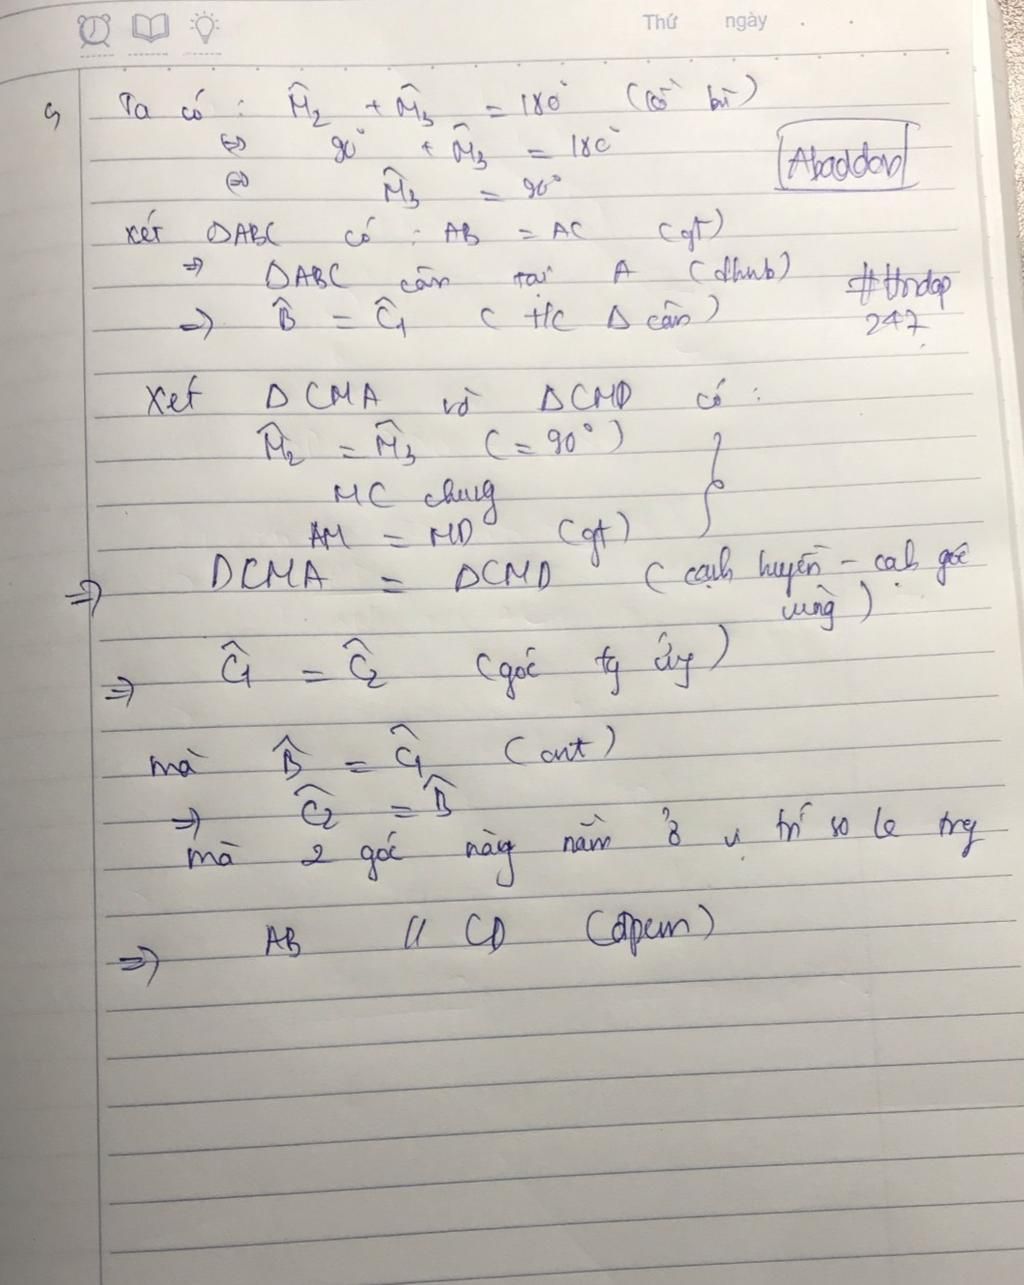 Thứ ngày . .
c, Ta có : M̂₂ + M̂₃ = 180° (kề bù)
⇔ 90° + M̂₃ = 180°
⇔ M̂₃ = 90°
Abaddon
Xét ΔABC có : AB = AC (gt)
⇒ ΔABC cân tại A (dhnb)
#Hoidap
247
⇒ B̂ = Ĉ₁ ( t/c Δ cân)
Xét ΔCMA và ΔCMD có :
M̂₂ = M̂₃ (= 90°)
MC chung
AM = MD (gt)
⇒ ΔCMA = ΔCMD ( cạnh huyền - cah góc
vuông )
⇒ Ĉ₁ = Ĉ₂ (góc tg ứg)
mà B̂ = Ĉ₁ (cmt)
⇒ Ĉ₂ = B̂
mà 2 góc này nằm ở vị trí so le trg
⇒ AB // CD (đpcm)